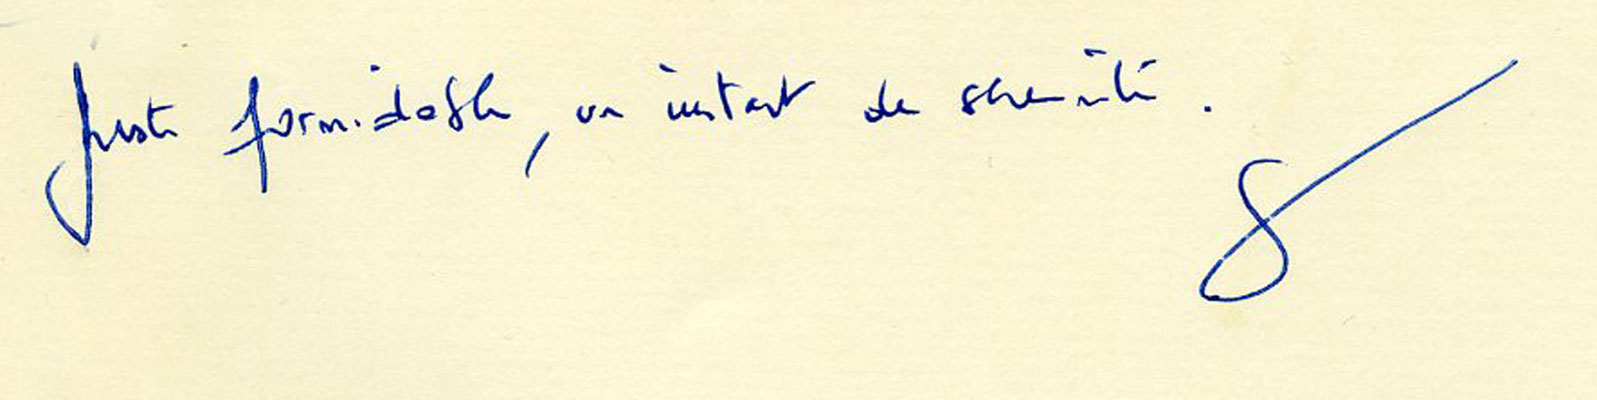 Juste formidable, un instant de sérénité.